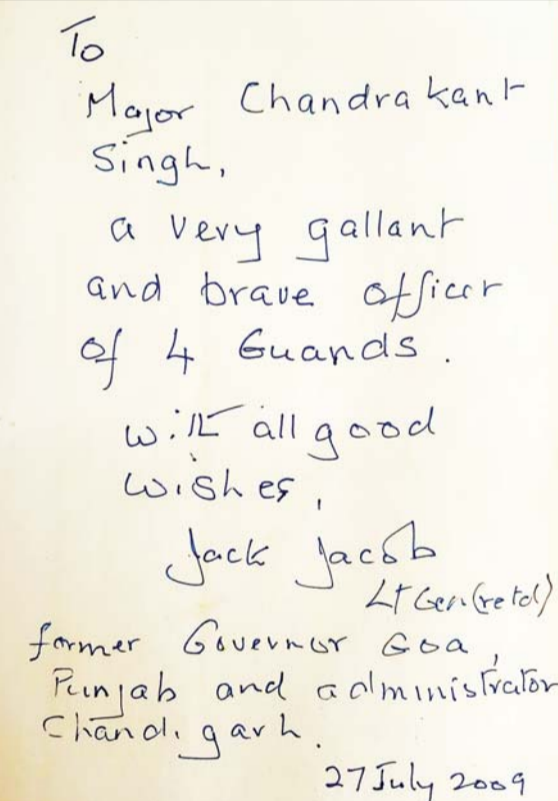 To
Major Chandrakant
Singh,
a very gallant
and brave officer
of 4 Guards.
with all good
wishes,
Jack Jacob
Lt Gen (retd)
former Governor Goa,
Punjab and administrator
Chandigarh.
27 July 2009